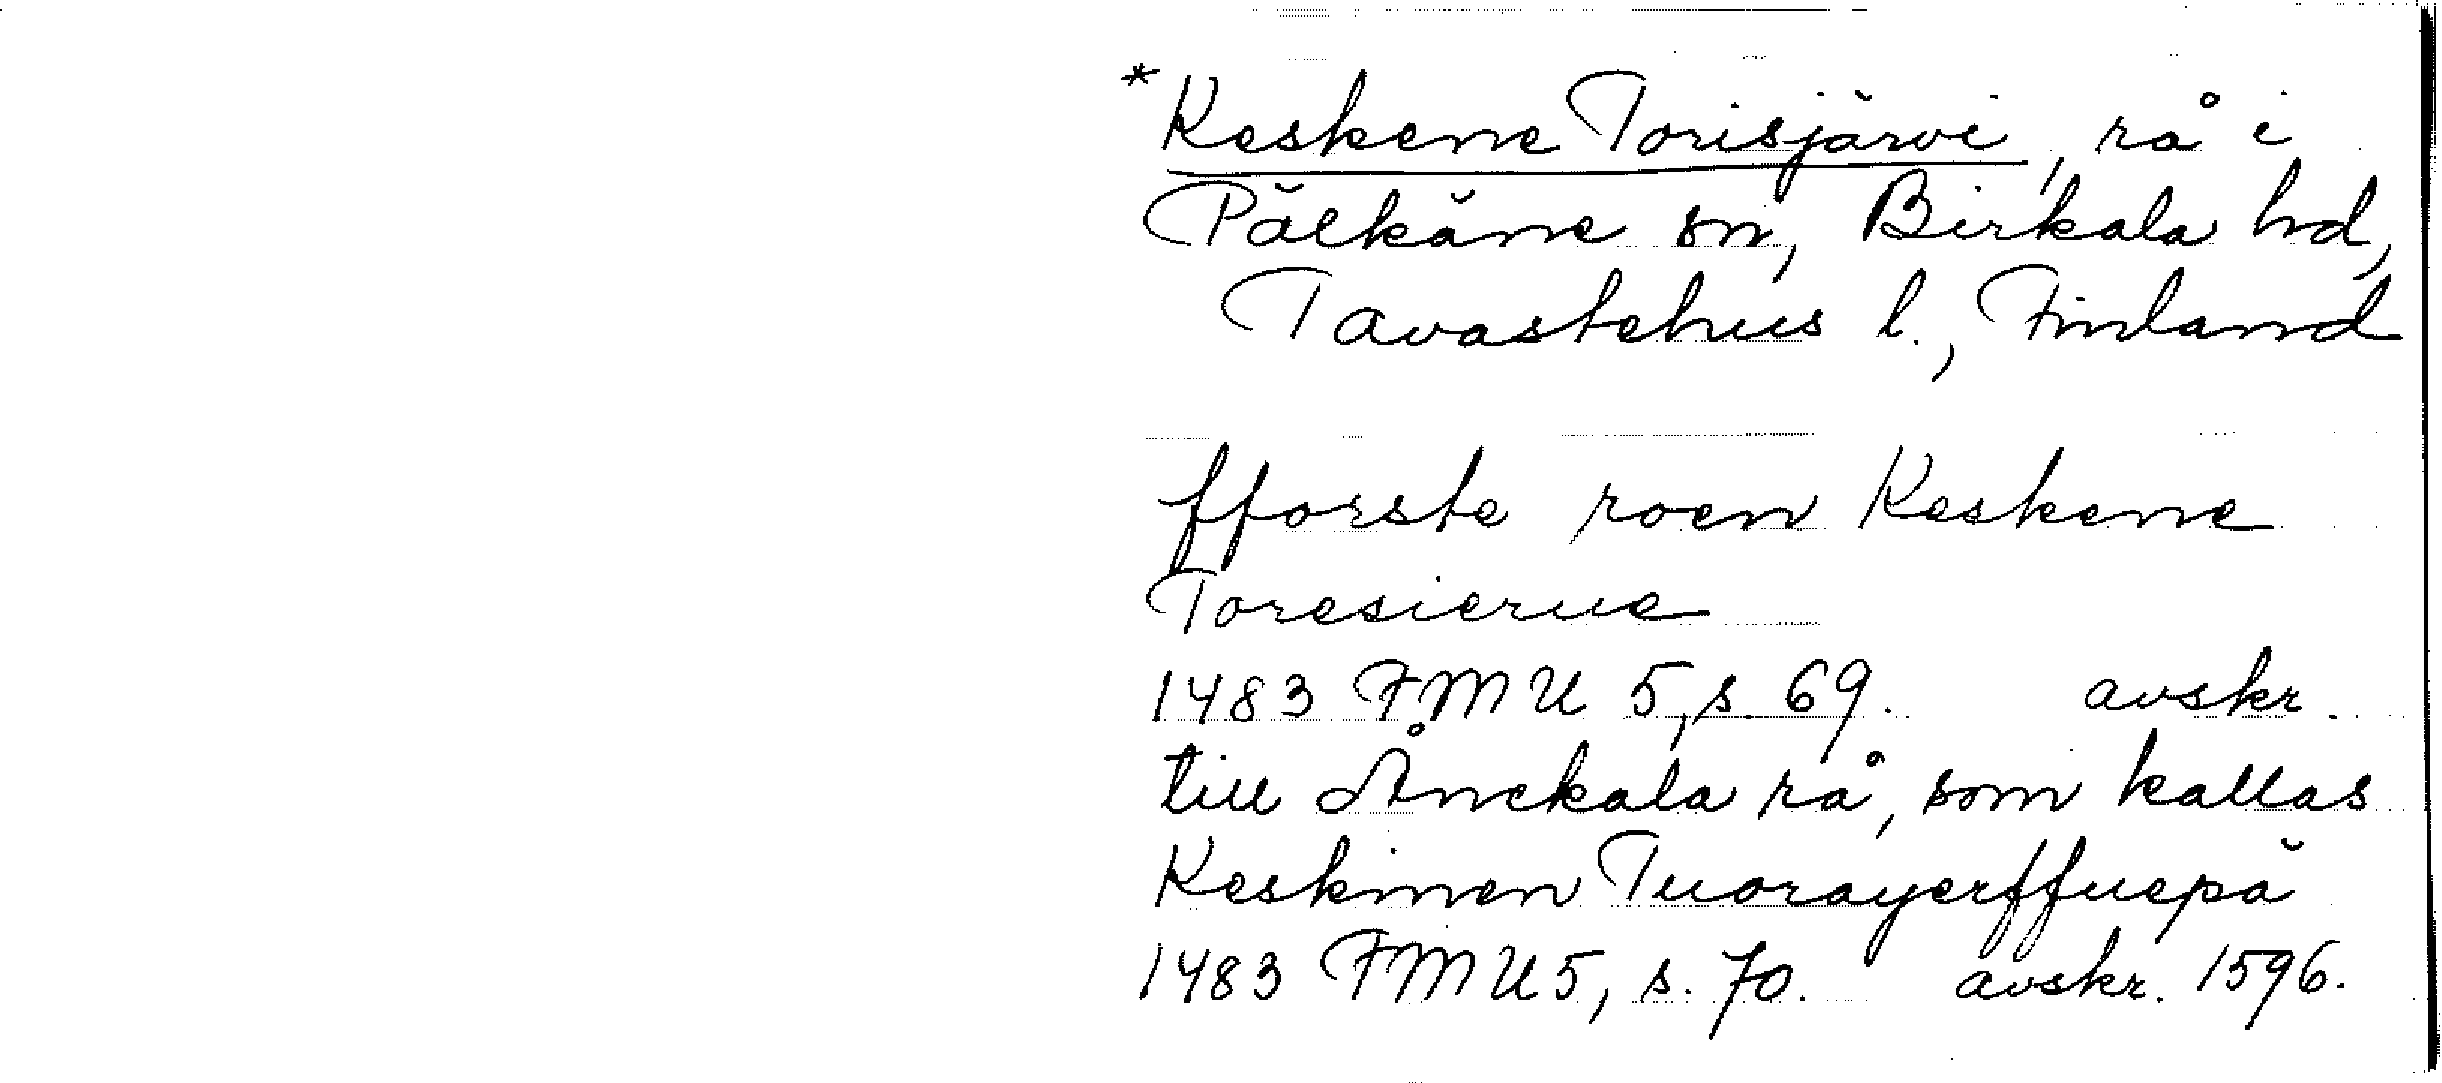 *Keskene Torisjärvi, rå i
Pälkäne sn, Birkala hd,
Tavastehus l., Finland
fforste roen Keskene
Toresierue
1483 FMU 5, s. 69. avskr.
till Ånckala rå, som kallas
Keskinen Tuorayerffuepä
1483 FMU 5, s. 70. avskr. 1596.